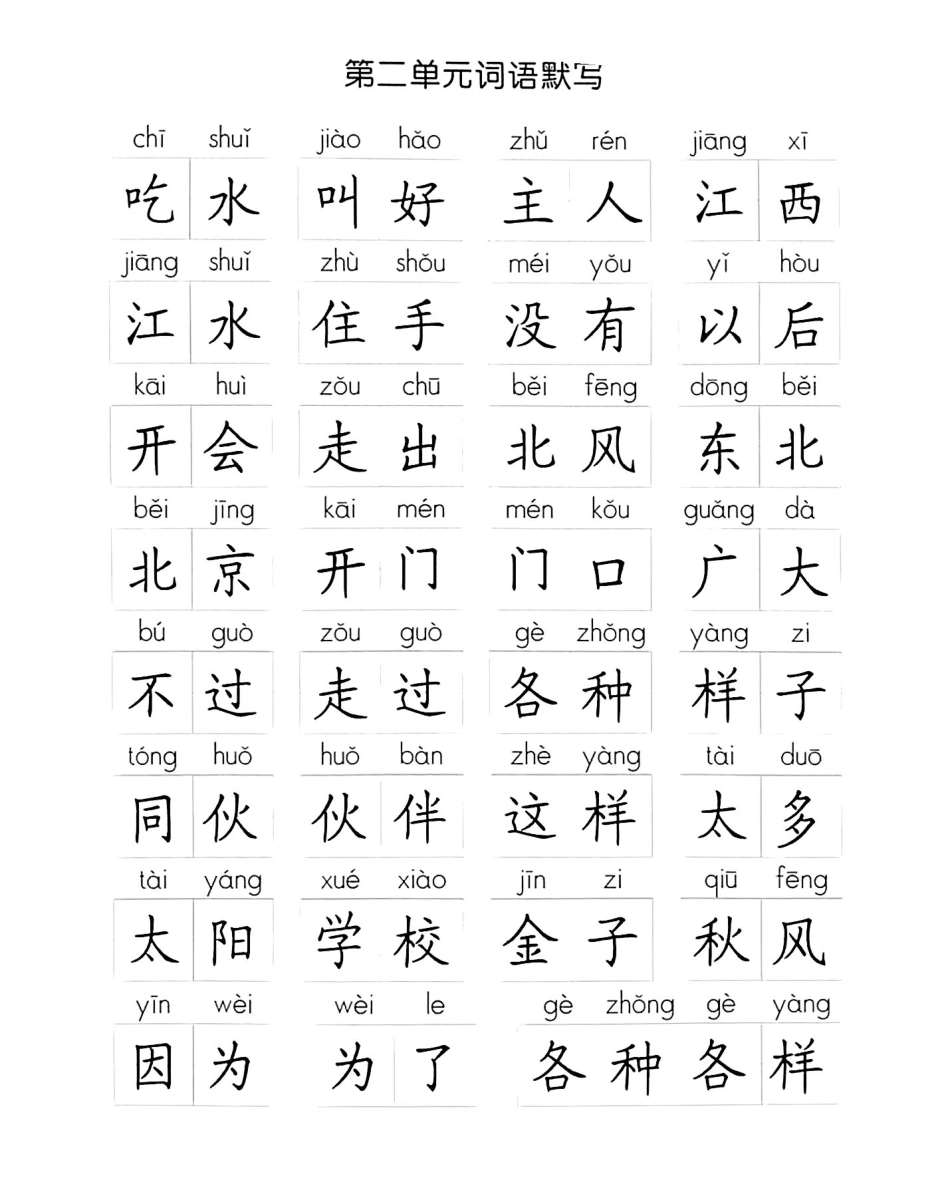 第二单元词语默写
chī shuǐ jiào hǎo zhǔ rén jiāng xī
吃水 叫好 主人 江西
jiāng shuǐ zhù shǒu méi yǒu yǐ hòu
江水 住手 没有 以后
kāi huì zǒu chū běi fēng dōng běi
开会 走出 北风 东北
běi jīng kāi mén mén kǒu guǎng dà
北京 开门 门口 广大
bú guò zǒu guò gè zhǒng yàng zi
不过 走过 各种 样子
tóng huǒ huǒ bàn zhè yàng tài duō
同伙 伙伴 这样 太多
tài yáng xué xiào jīn zi qiū fēng
太阳 学校 金子 秋风
yīn wèi wèi le gè zhǒng gè yàng
因为 为了 各种各样